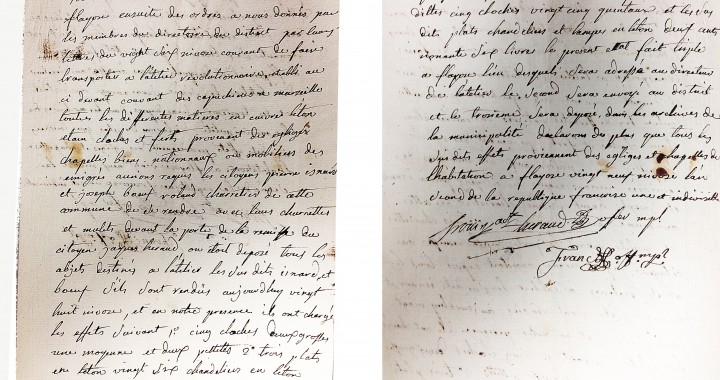 flayosc ensuite des ordres a nous donnés par
les membres du directoire du district par leurs
lettres du vingt six nivose courant de faire
transporter a latelier révolutionnaire establi au
ci devant couvent des capucines a marseille
toutes les differentes matieres en cuivre leton
etain cloches et provient des eglises
chapelles biens nationnaux ou mobiliers des
emigrés aurions requis les citoyens pierre isnard
et joseph bœuf voland charretier de cette
commune de se rendre avec leurs charrettes
et mulets devant la porte de la remise du
citoyen jaques heraud ou etoit deposé tous les
objets destinés a latelier les dits isnard et
bœuf s'ils sont rendus aujourdhuy vingt
huit nivose, et en notre presence ils ont chargé
les effets suivant 1º cinq cloches deux grosses
une moyenne et deux pettites 2º trois plats
en leton vingt six chandeliers en leton
dittes cinq cloches vingt cinq quintaux et les sus
dits plats chandeliers et lampes en leton deux cents
soixante six livre le present etat fait triple
a flayosc lieu desquels sera adressé au directeur
de latelier le second sera envoyé au district
et le troisieme sera deposé dans les archives de
la municipalité declarons de plus que tous les
sus dits effets proviennent des eglises et chapelles de
lhabitation a flayosc vingt neuf nivose lan
second de la republique francoise une et indivisible
heraud offer mpl
Jvan off. mpl